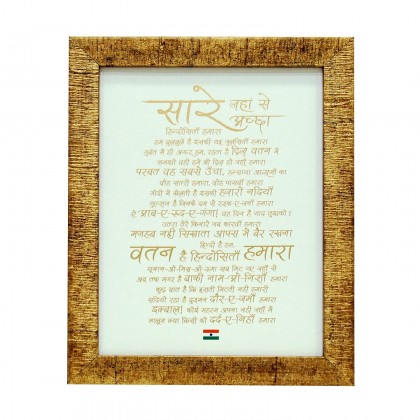 सारे जहाँ से
अच्छा
हिन्दोसिताँ हमारा
हम बुलबुलें हैं इसकी यह गुलसिताँ हमारा
ग़ुर्बत में हों अगर हम, रहता है दिल वतन में
समझो वहीं हमें भी दिल हो जहाँ हमारा
परबत वह सबसे ऊँचा, हमसाया आसमाँ का
वह संतरी हमारा, वह पासबाँ हमारा
गोदी में खेलती हैं इसकी हज़ारों नदियाँ
गुलशन है जिनके दम से रश्क-ए-जनाँ हमारा
ऐ आब-ए-रूद-ए-गंगा! वह दिन है याद तुझको?
उतरा तेरे किनारे जब कारवाँ हमारा
मज़हब नहीं सिखाता आपस में बैर रखना
हिन्दी हैं हम,
वतन है हिन्दोसिताँ हमारा
यूनान-ओ-मिस्र-ओ-रूमा सब मिट गए जहाँ से
अब तक मगर है बाक़ी नाम-ओ-निशाँ हमारा
कुछ बात है कि हस्ती मिटती नहीं हमारी
सदियों रहा है दुश्मन दौर-ए-ज़माँ हमारा
इक़बाल! कोई महरम अपना नहीं जहाँ में
मालूम क्या किसी को दर्द-ए-निहाँ हमारा